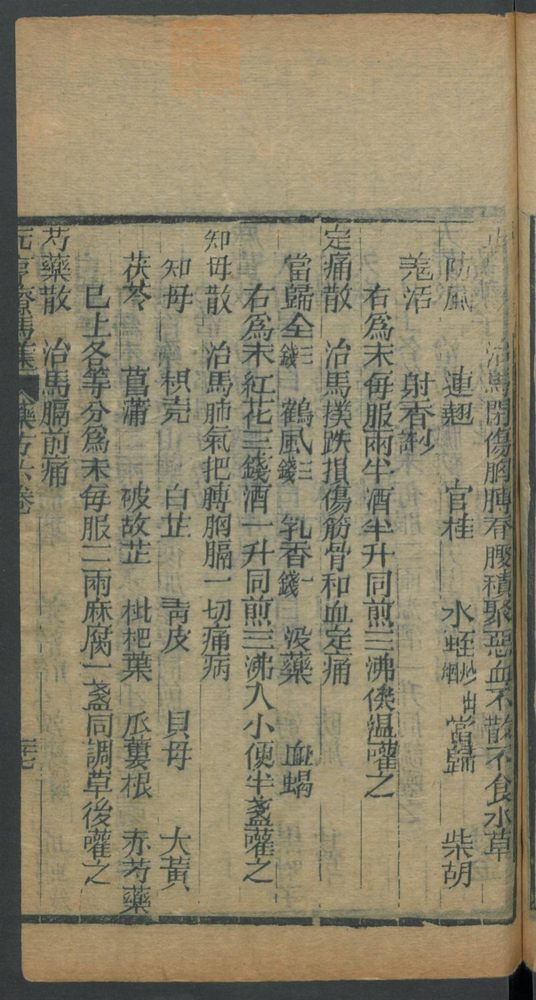 治馬閃傷胸膊脊腰積聚惡血不散不食水草
防風　連翹　官桂　水蛭炒　當歸　柴胡
羌活　射香
右為末每服兩半酒半升同煎三沸候温嚾之
定痛散　治馬撲跌損傷筋骨和血定痛
當歸全三錢　鶴虱三錢　乳香一錢　没藥　血蝎
右為末紅花三錢酒一升同煎三沸入小便半盞嚾之
知母散　治馬肺氣把膊胸膈一切痛病
知母　枳壳　白芷　青皮　貝母　大黄
茯苓　菖蒲　破故芷　枇杷葉　瓜蔞根　赤芍藥
已上各等分為末每服二兩麻腐一盞同調草後嚾之
芍藥散　治馬膈前痛
元亨療馬集　藥方六卷